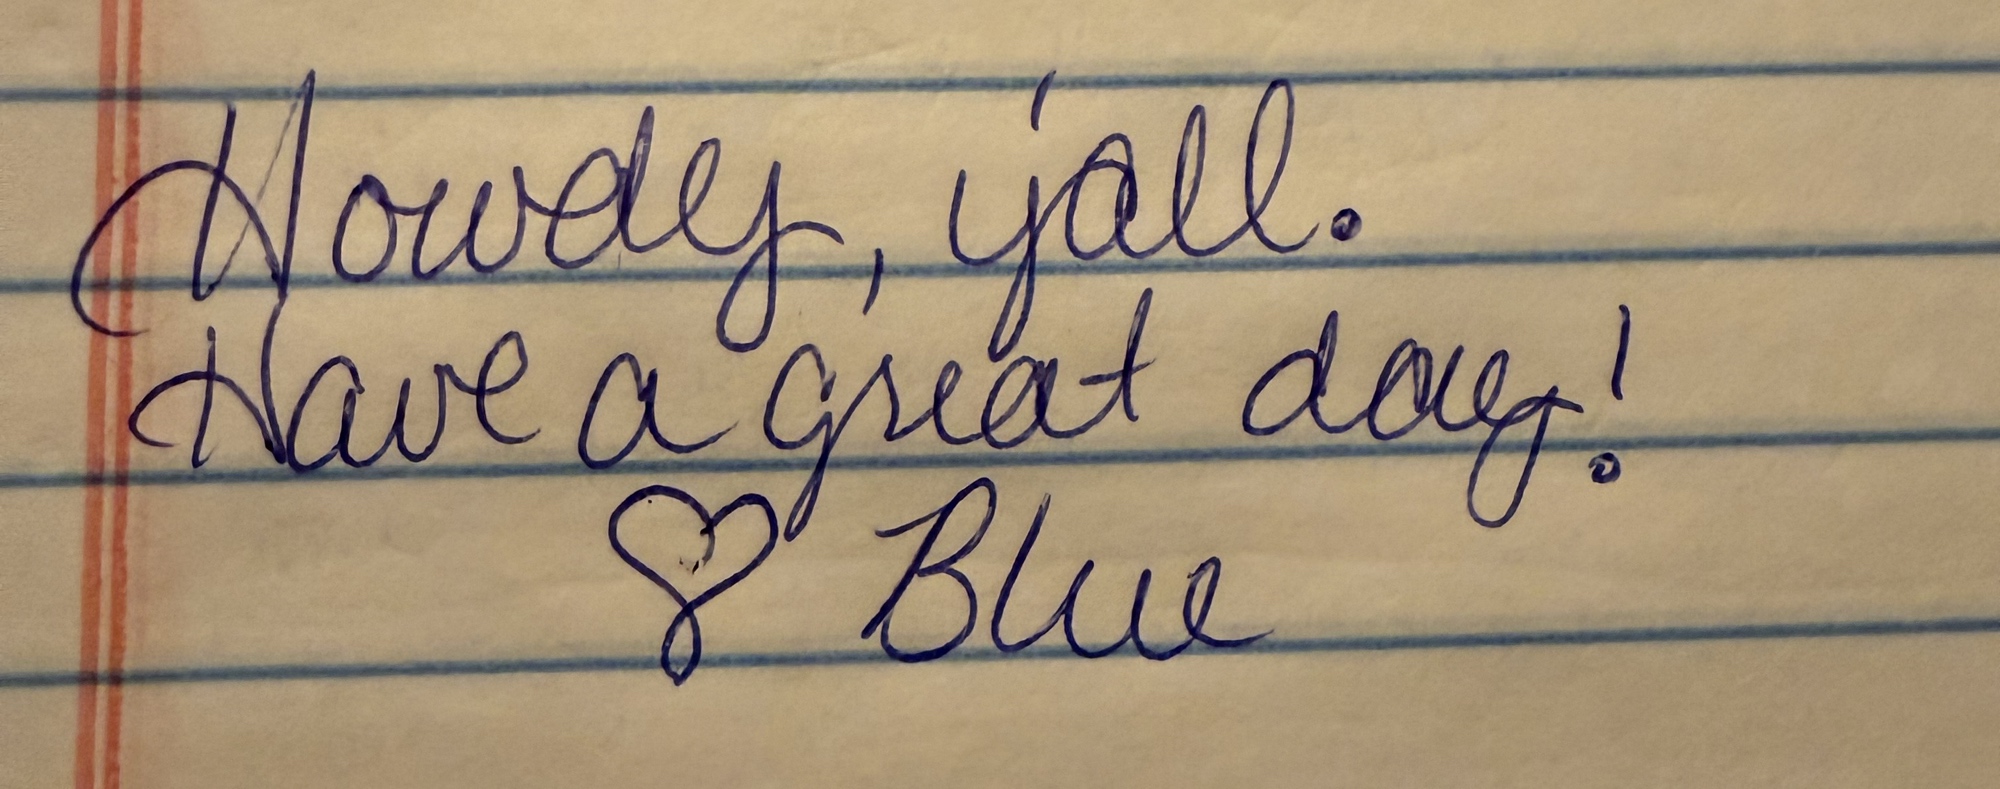 Howdy, y'all.
Have a great day!
♡ Blue